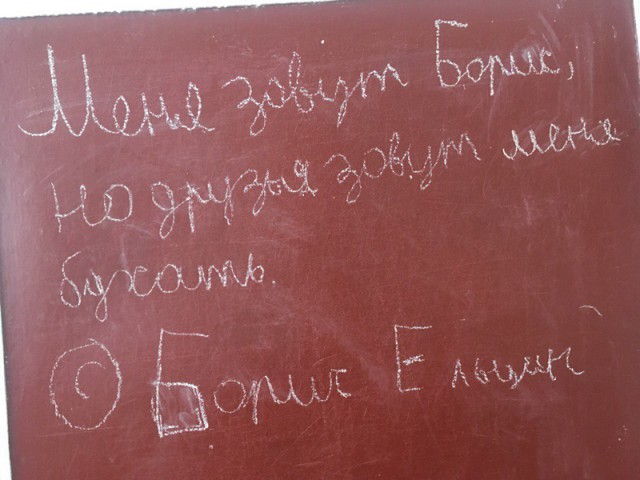 Меня зовут Борис,
но друзья зовут меня
бухать.
© Борис Ельцин